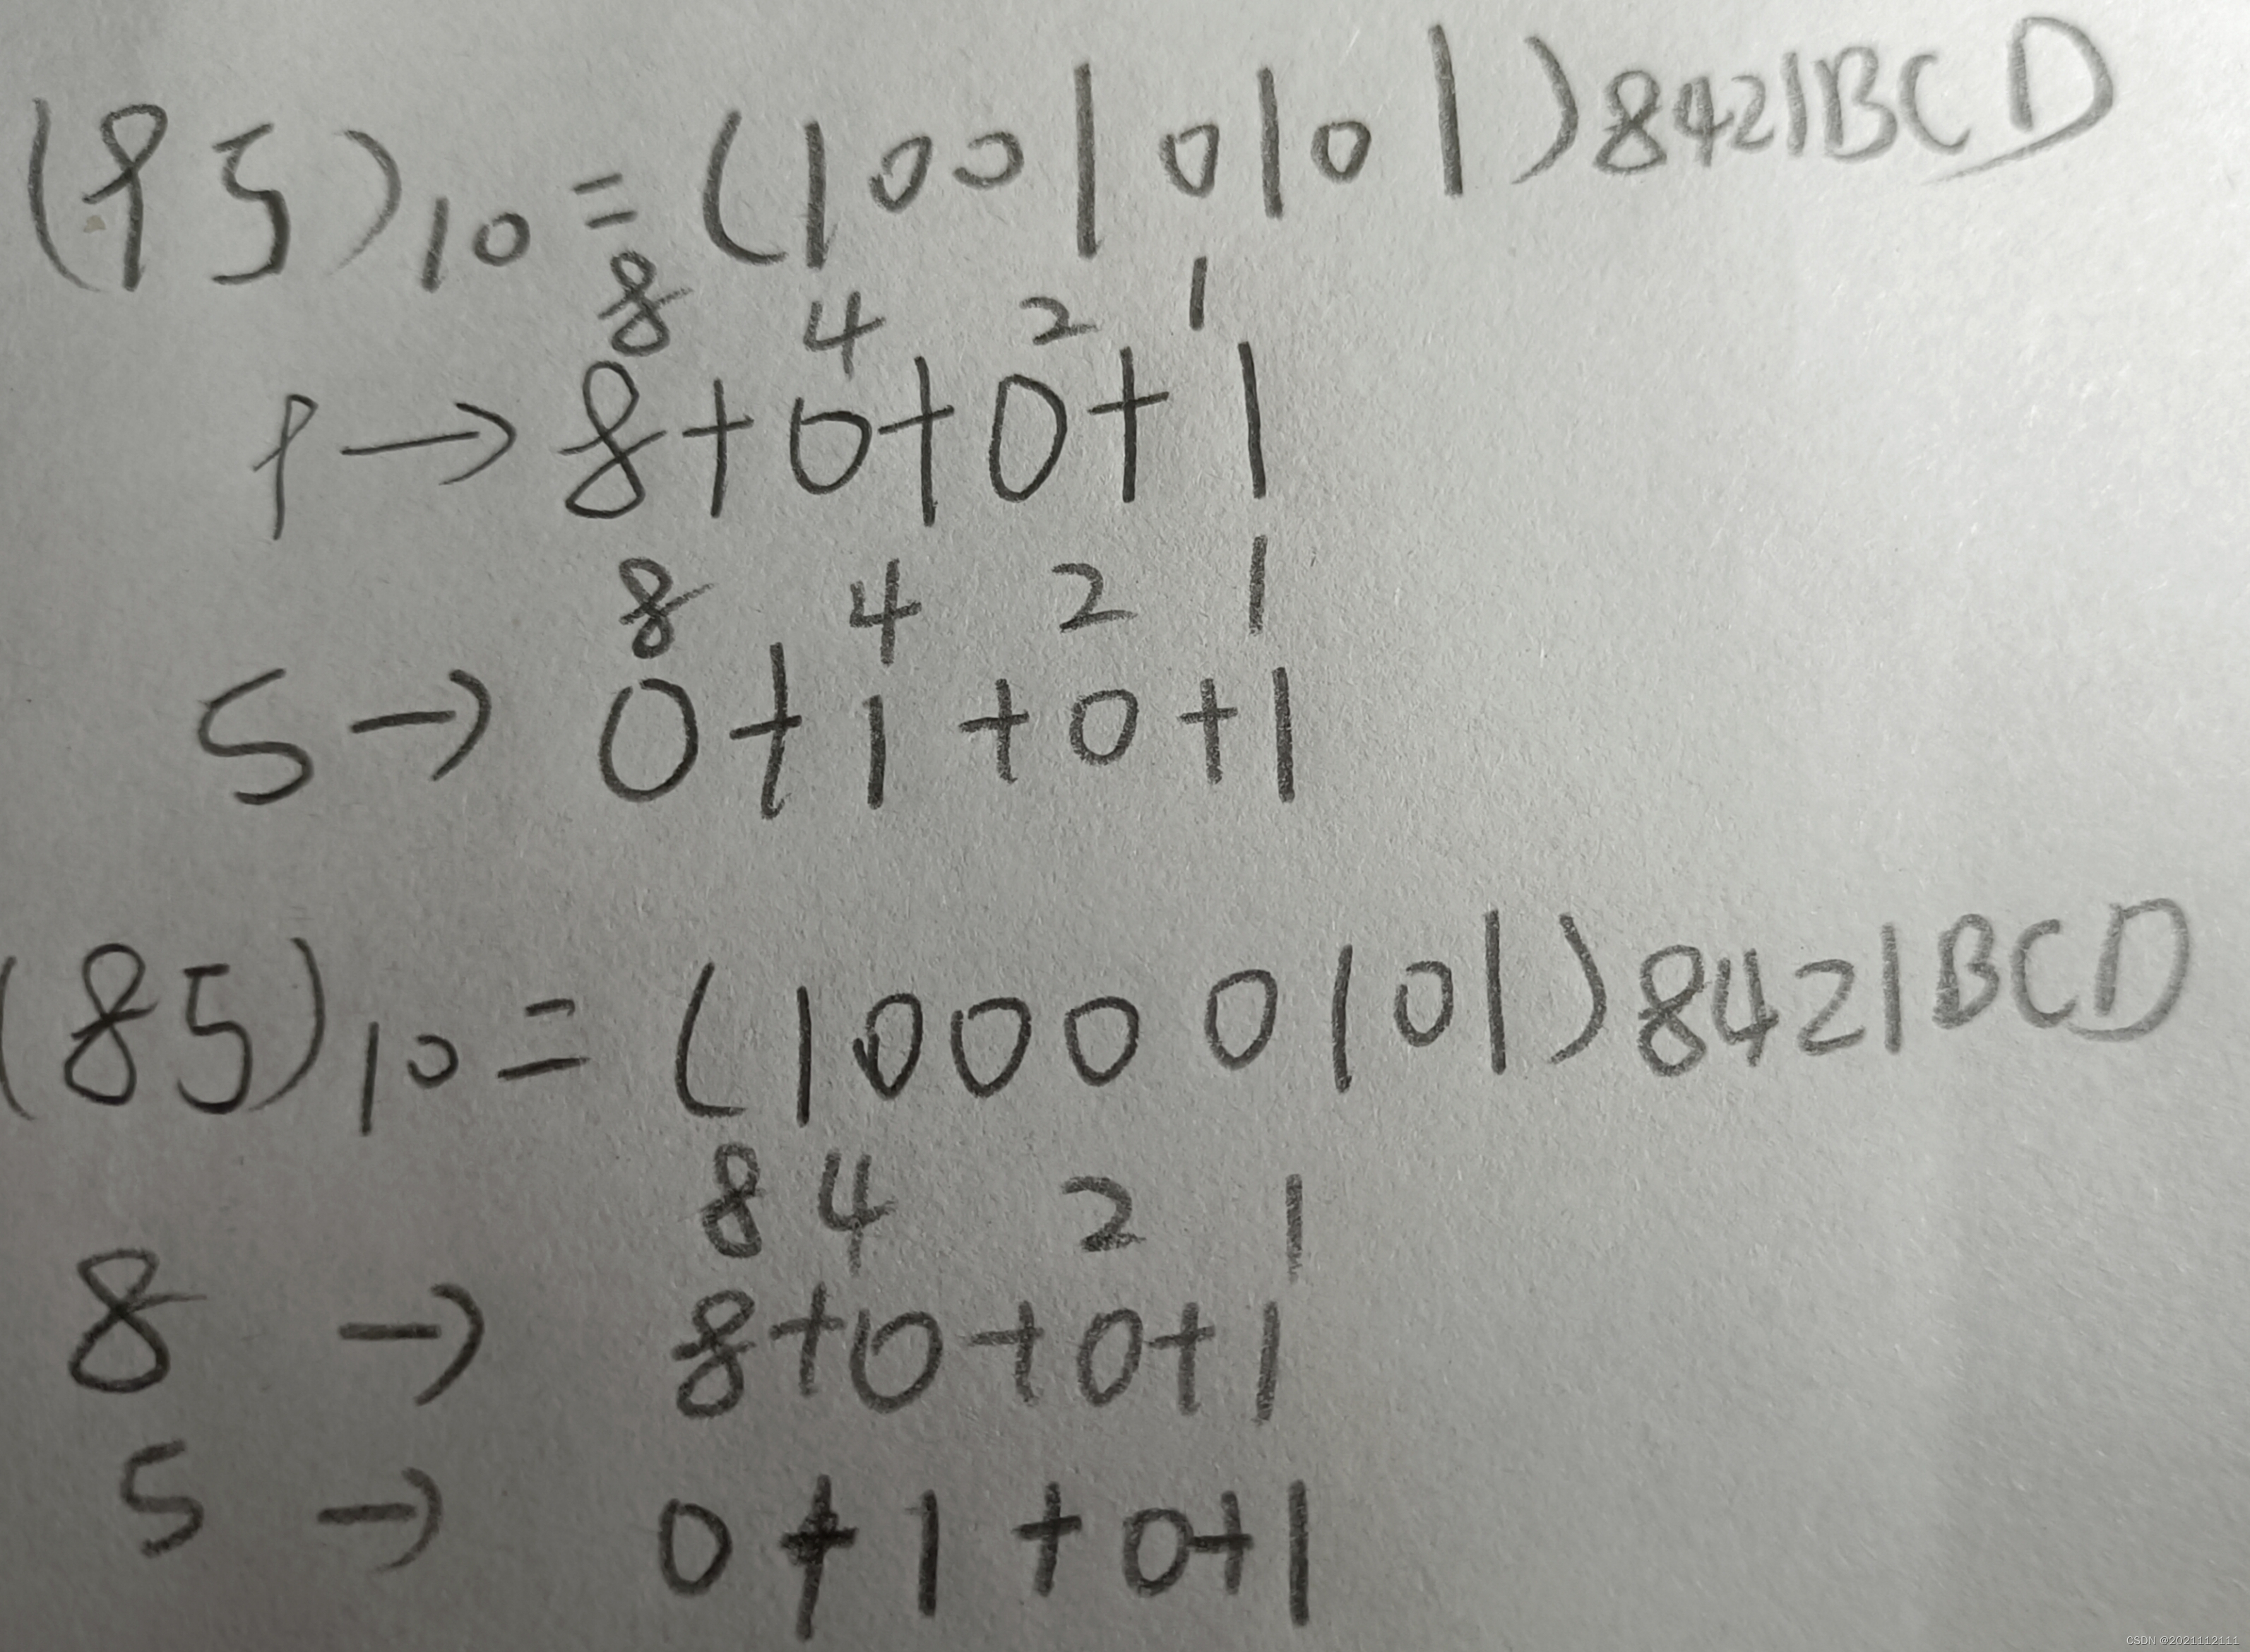 (95)10 = (10010101)8421BCD
8 4 2 1
9 → 8+0+0+1
8 4 2 1
5 → 0+1+0+1
(85)10 = (10000101)8421BCD
8 4 2 1
8 → 8+0+0+1
5 → 0+1+0+1
CSDN @2021112111